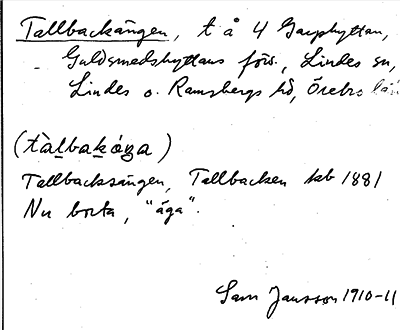 Tallbackängen, t å 4 Garphyttan,
Guldsmedshyttans förs., Lindes sn,
Lindes o. Ramsbergs hd, Örebro län
(tàlbakǫ́ŋa)
Tallbacksängen, Tallbacken kab 1881
Nu borta, "äga".
Sam Jansson 1910-11